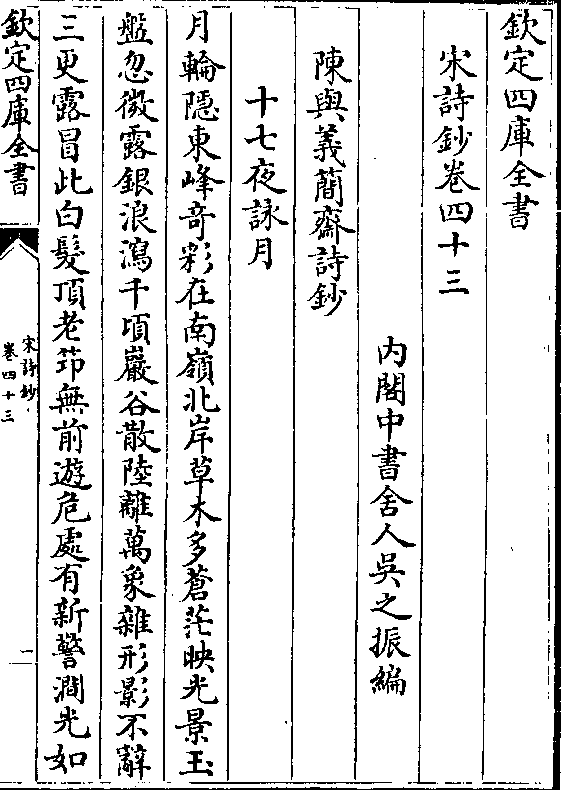 欽定四庫全書
宋詩鈔卷四十三
內閣中書舍人吳之振編
陳與義簡齋詩鈔
十七夜詠月
月輪隠東峰竒彩在南嶺北岸草木多蒼茫映光景玉
盤忽微露銀浪瀉千頃巖谷散陸離萬象雜形影不辭
三更露冒此白髮頂老笻無前遊危處有新警澗光如
欽定四庫全書
宋詩鈔
卷四十三
一